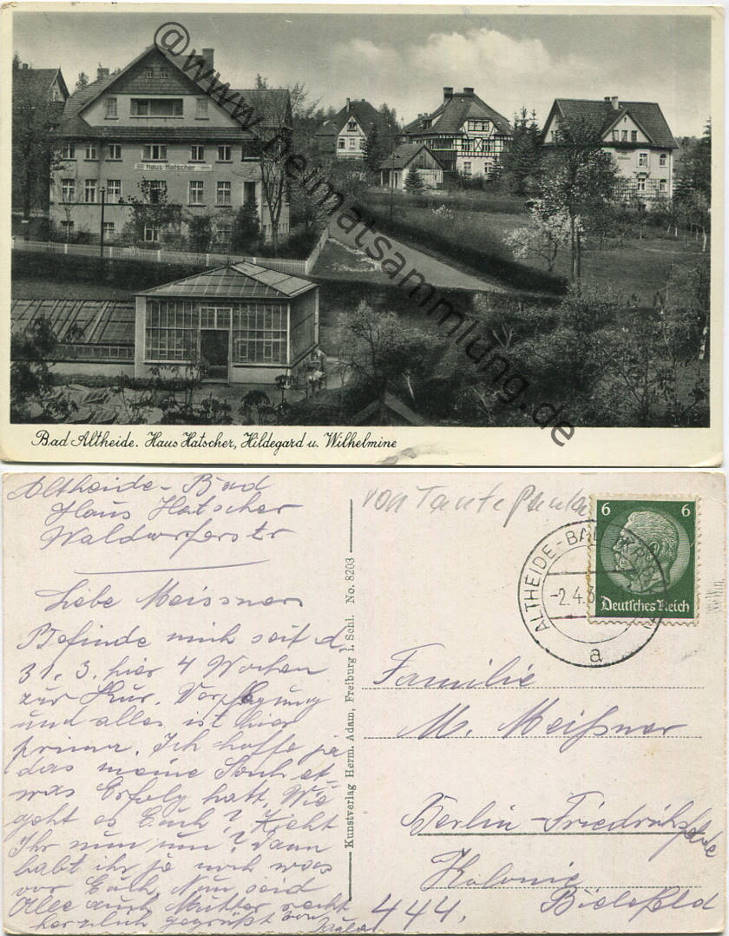 @ www.heimatsammlung.de
Haus Hatscher
Bad Altheide. Haus Hatscher, Hildegard u. Wilhelmine
Altheide-Bad
Haus Hatscher
Waldorferstr
Liebe Meissners
Befinde mich seit d.
31. 3. hier 4 Wochen
zur Kur. Verpflegung
und alles ist hier
prima. Ich hoffe ja
das meine
was Erfolg hatt. Wie
geht es Euch? Zieht
Ihr nun um? dann
habt ihr ja noch was
vor Euch. Nun seid
Alle auch Mutter recht
herzlich gegrüßt von
Kunstverlag Herm. Adam, Freiburg i. Schl. No. 8203
von Tante
ALTHEIDE-BAD
-2.4.3
a
6 6
Deutsches Reich
Familie
M. Meißner
Berlin-Friedrichsfelde
Kolonie Bielefeld
444.